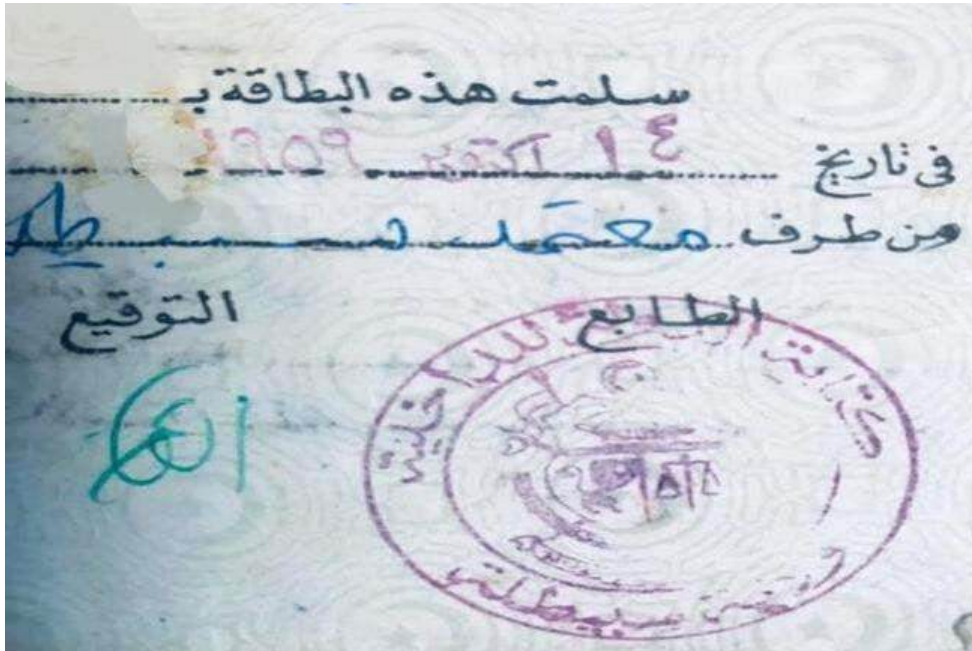 سلمت هذه البطاقة بـ
في تاريخ ١٤ اكتوبر ١٩٥٩
من طرف معتمد سبيطلـ
الطابع
التوقيع
كتابة الدولة للداخلية
سبيطلة